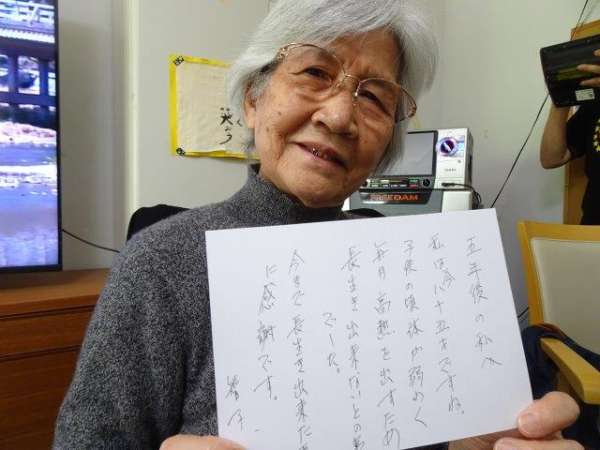 五年後の私へ
私は今八十五才ですね。
子供の頃体が弱わく
毎月高熱を出すため
長生き出来ないとの
でした。
今まで長生き出来た
に感謝です。
笑う
FREEDAM